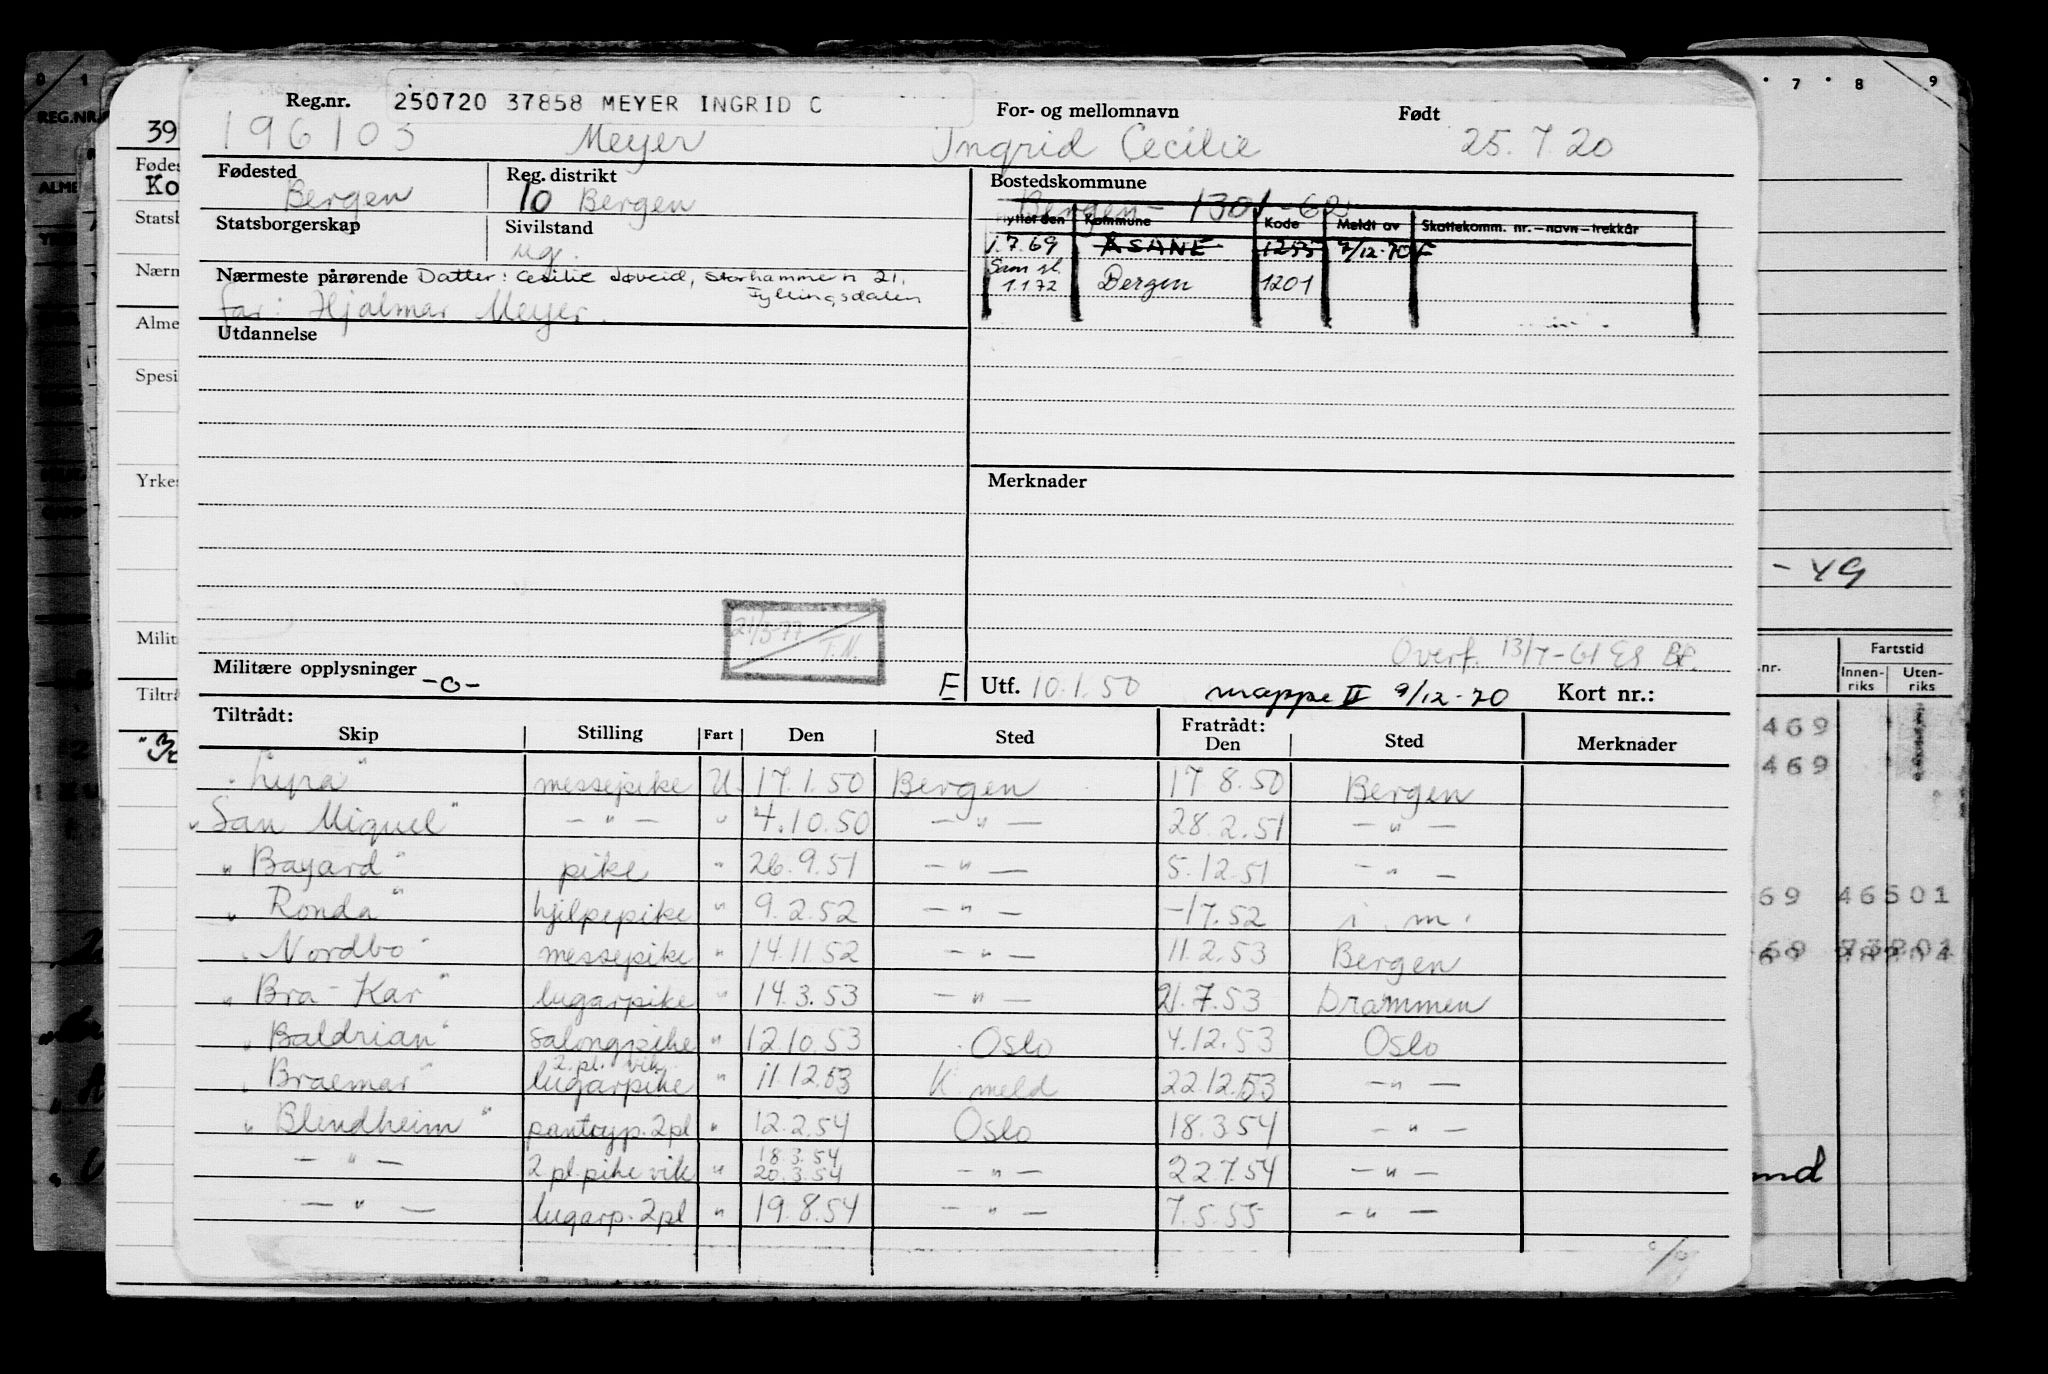 Reg.nr. 250720 37858 MEYER INGRID C For- og mellomnavn Født
196103 Meyer Ingrid Cecilie 25.7.20
Fødested Reg. distrikt Bostedskommune
Bergen 10 Bergen Bergen - 1301-62
Statsborgerskap Sivilstand
ug.
Flyttet den Kommune Kode Meldt av Skattekomm. nr.-navn-trekkår
1.7.69 ÅSANE 1255 7/12-70 F
Sam sl.
1.1.72 Bergen 1201
Nærmeste pårørende Datter: Cecilie Løveid, Storhammeren 21,
Fyllingsdalen
far: Hjalmar Meyer.
Utdannelse
Merknader
21/3-77
T.N.
Overf. 13/7-61 ES BP.
Militære opplysninger -o- E Utf. 10.1.50 mappe II 9/12-70 Kort nr.:
Tiltrådt: Fratrådt:
Skip Stilling Fart Den Sted Den Sted Merknader
"Lyra" messepike U. 17.1.50 Bergen 17.8.50 Bergen
"San Miquel" — " — " 4.10.50 — " — 28.2.51 — " —
"Bayard" pike " 26.9.51 — " — 5.12.51 — " —
"Ronda" hjelpepike " 9.2.52 — " — -17.52 i. m.
"Nordbo" messepike " 14.11.52 — " — 11.2.53 Bergen
"Bra-Kar" lugarpike " 14.3.53 — " — 21.7.53 Drammen
"Baldrian" salongpike " 12.10.53 Oslo 4.12.53 Oslo
2.pl. vik
"Braemar" lugarpike " 11.12.53 K meld 22.12.53 — " —
"Blendheim" pantryp. 2pl " 12.2.54 Oslo 18.3.54 — " —
18.3.54
— " — 2 pl. pike vik " 20.3.54 — " — 22.7.54 — " —
— " — lugarp. 2pl " 19.8.54 — " — 7.5.55 — " —
0 1
REG.NR.
39
Ko
Spesi
Yrkes
Milit
7 8 9
- 49
.nr. Fartstid
Innen-
riks
Uten-
riks
469
469
69 46501